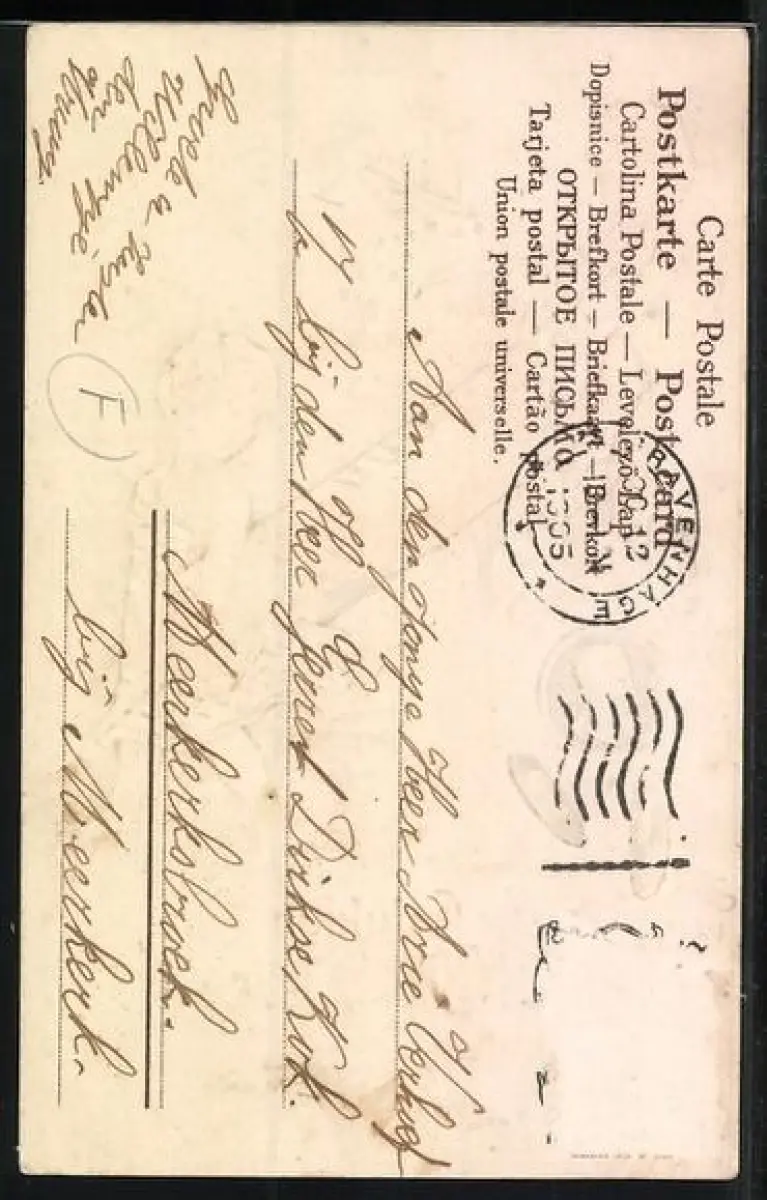 Carte Postale
Postkarte — Post card
Cartolina Postale — Levelező-Lap
Dopisnice — Brefkort — Briefkaart — Brevkort
ОТКРЫТОЕ ПИСЬМО
Tarjeta postal — Cartão postal
Union postale universelle.
RAVENHAGE
12
1905
Aan den Jonge Heer Arie Verhoef
bij den Heer Gerret Dirkse Kok.
Meerkerksbroek.
bij Meerkerk.
Groete u
Willempje
den
F